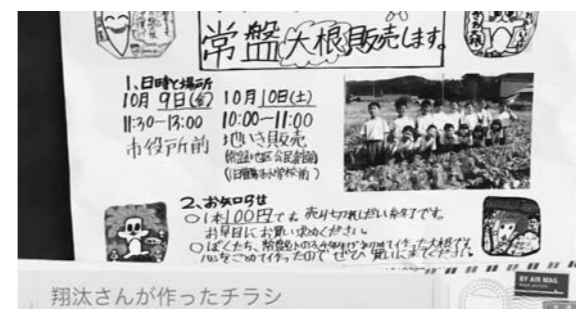 常盤大根販売します。
1、日時と場所
10月9日(金) 10月10日(土)
11:30-13:00 10:00-11:00
市役所前 地いき販売
常盤地区公民館前
2、お知らせ
○1本100円です。売り切れしだい終了です。
お早目にお買い求めください。
○ぼくたち、常盤小の
心をこめて作ったのでぜひ買いに来てください。
BY AIR MAIL
翔汰さんが作ったチラシ